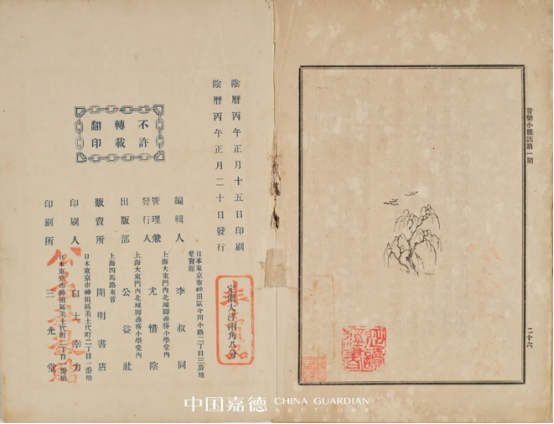 音樂小雜誌第一期
二十六
陰曆丙午正月十五日印刷
陰曆丙午正月二十日發行
不許
轉載
翻印
編輯人 李叔同
管理兼
發行人 尤惜陰
上海大東門內北城腳義務小學堂內
出版部 公益社
上海大東門內北城腳義務小學堂內
販賣所 開明書店
上海四馬路東首
印刷人 白土幸力
日本東京市神田區美土代町二丁目一番地
印刷所 三光堂
日本東京市神田區美土代町二丁目一番地
中国嘉德 CHINA GUARDIAN
AUCTIONS